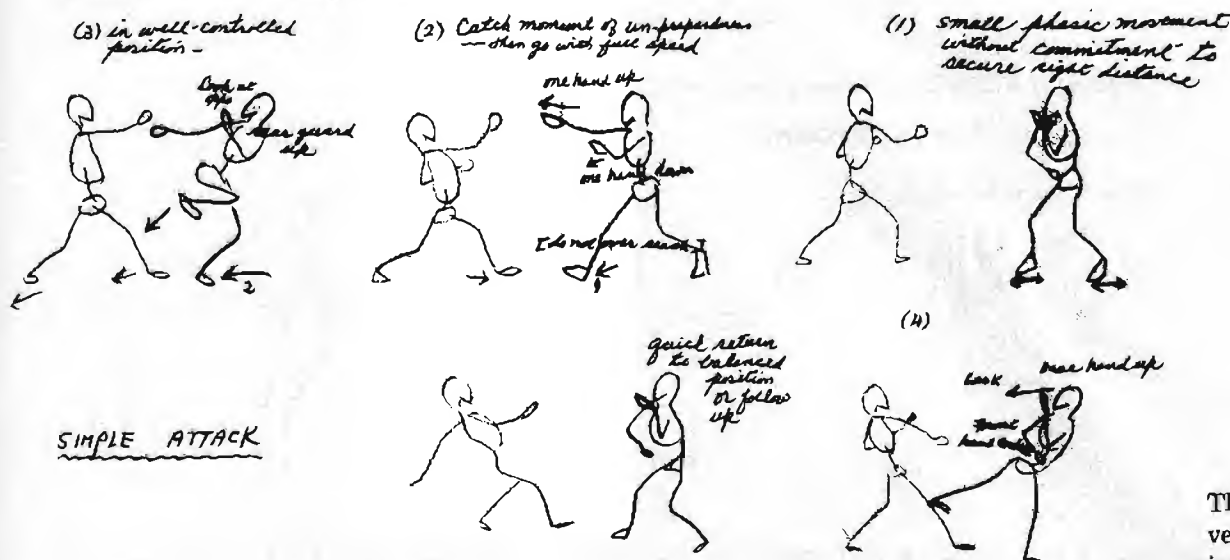 (3) in well-controlled
position -
Look at
opp
rear guard
up
2
(2) Catch moment of un-preparedness
— then go with full speed
one hand up
one hand down
I do not over reach
1
(1) small phasic movement
without commitment to
secure right distance
SIMPLE ATTACK
quick return
to balanced
position
or follow
up
(4)
Look
rear hand up
front
hand
Th
ve